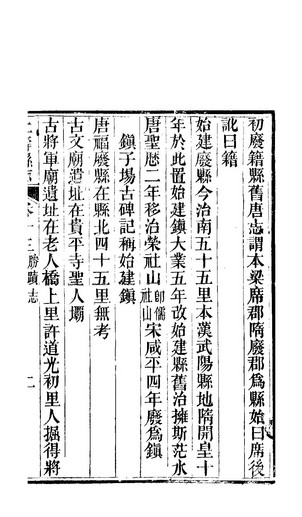 初廢籍縣舊唐志謂本梁席郡隋廢郡爲縣始曰席後
訛曰籍
始建廢縣今治南五十五里本漢武陽縣地隋開皇十
年於此置始建鎮大業五年改始建縣舊治擁斯茫水
唐聖歴二年移治榮社山卽儒社山宋咸平四年廢爲鎮
鎮子場古碑記稱始建鎮
唐福廢縣在縣北四十五里無考
古文廟遺址在貴平寺聖人壩
古將軍廟遺址在老人橋上里許道光初里人掘得將
仁壽縣志
卷十三
勝蹟志
二